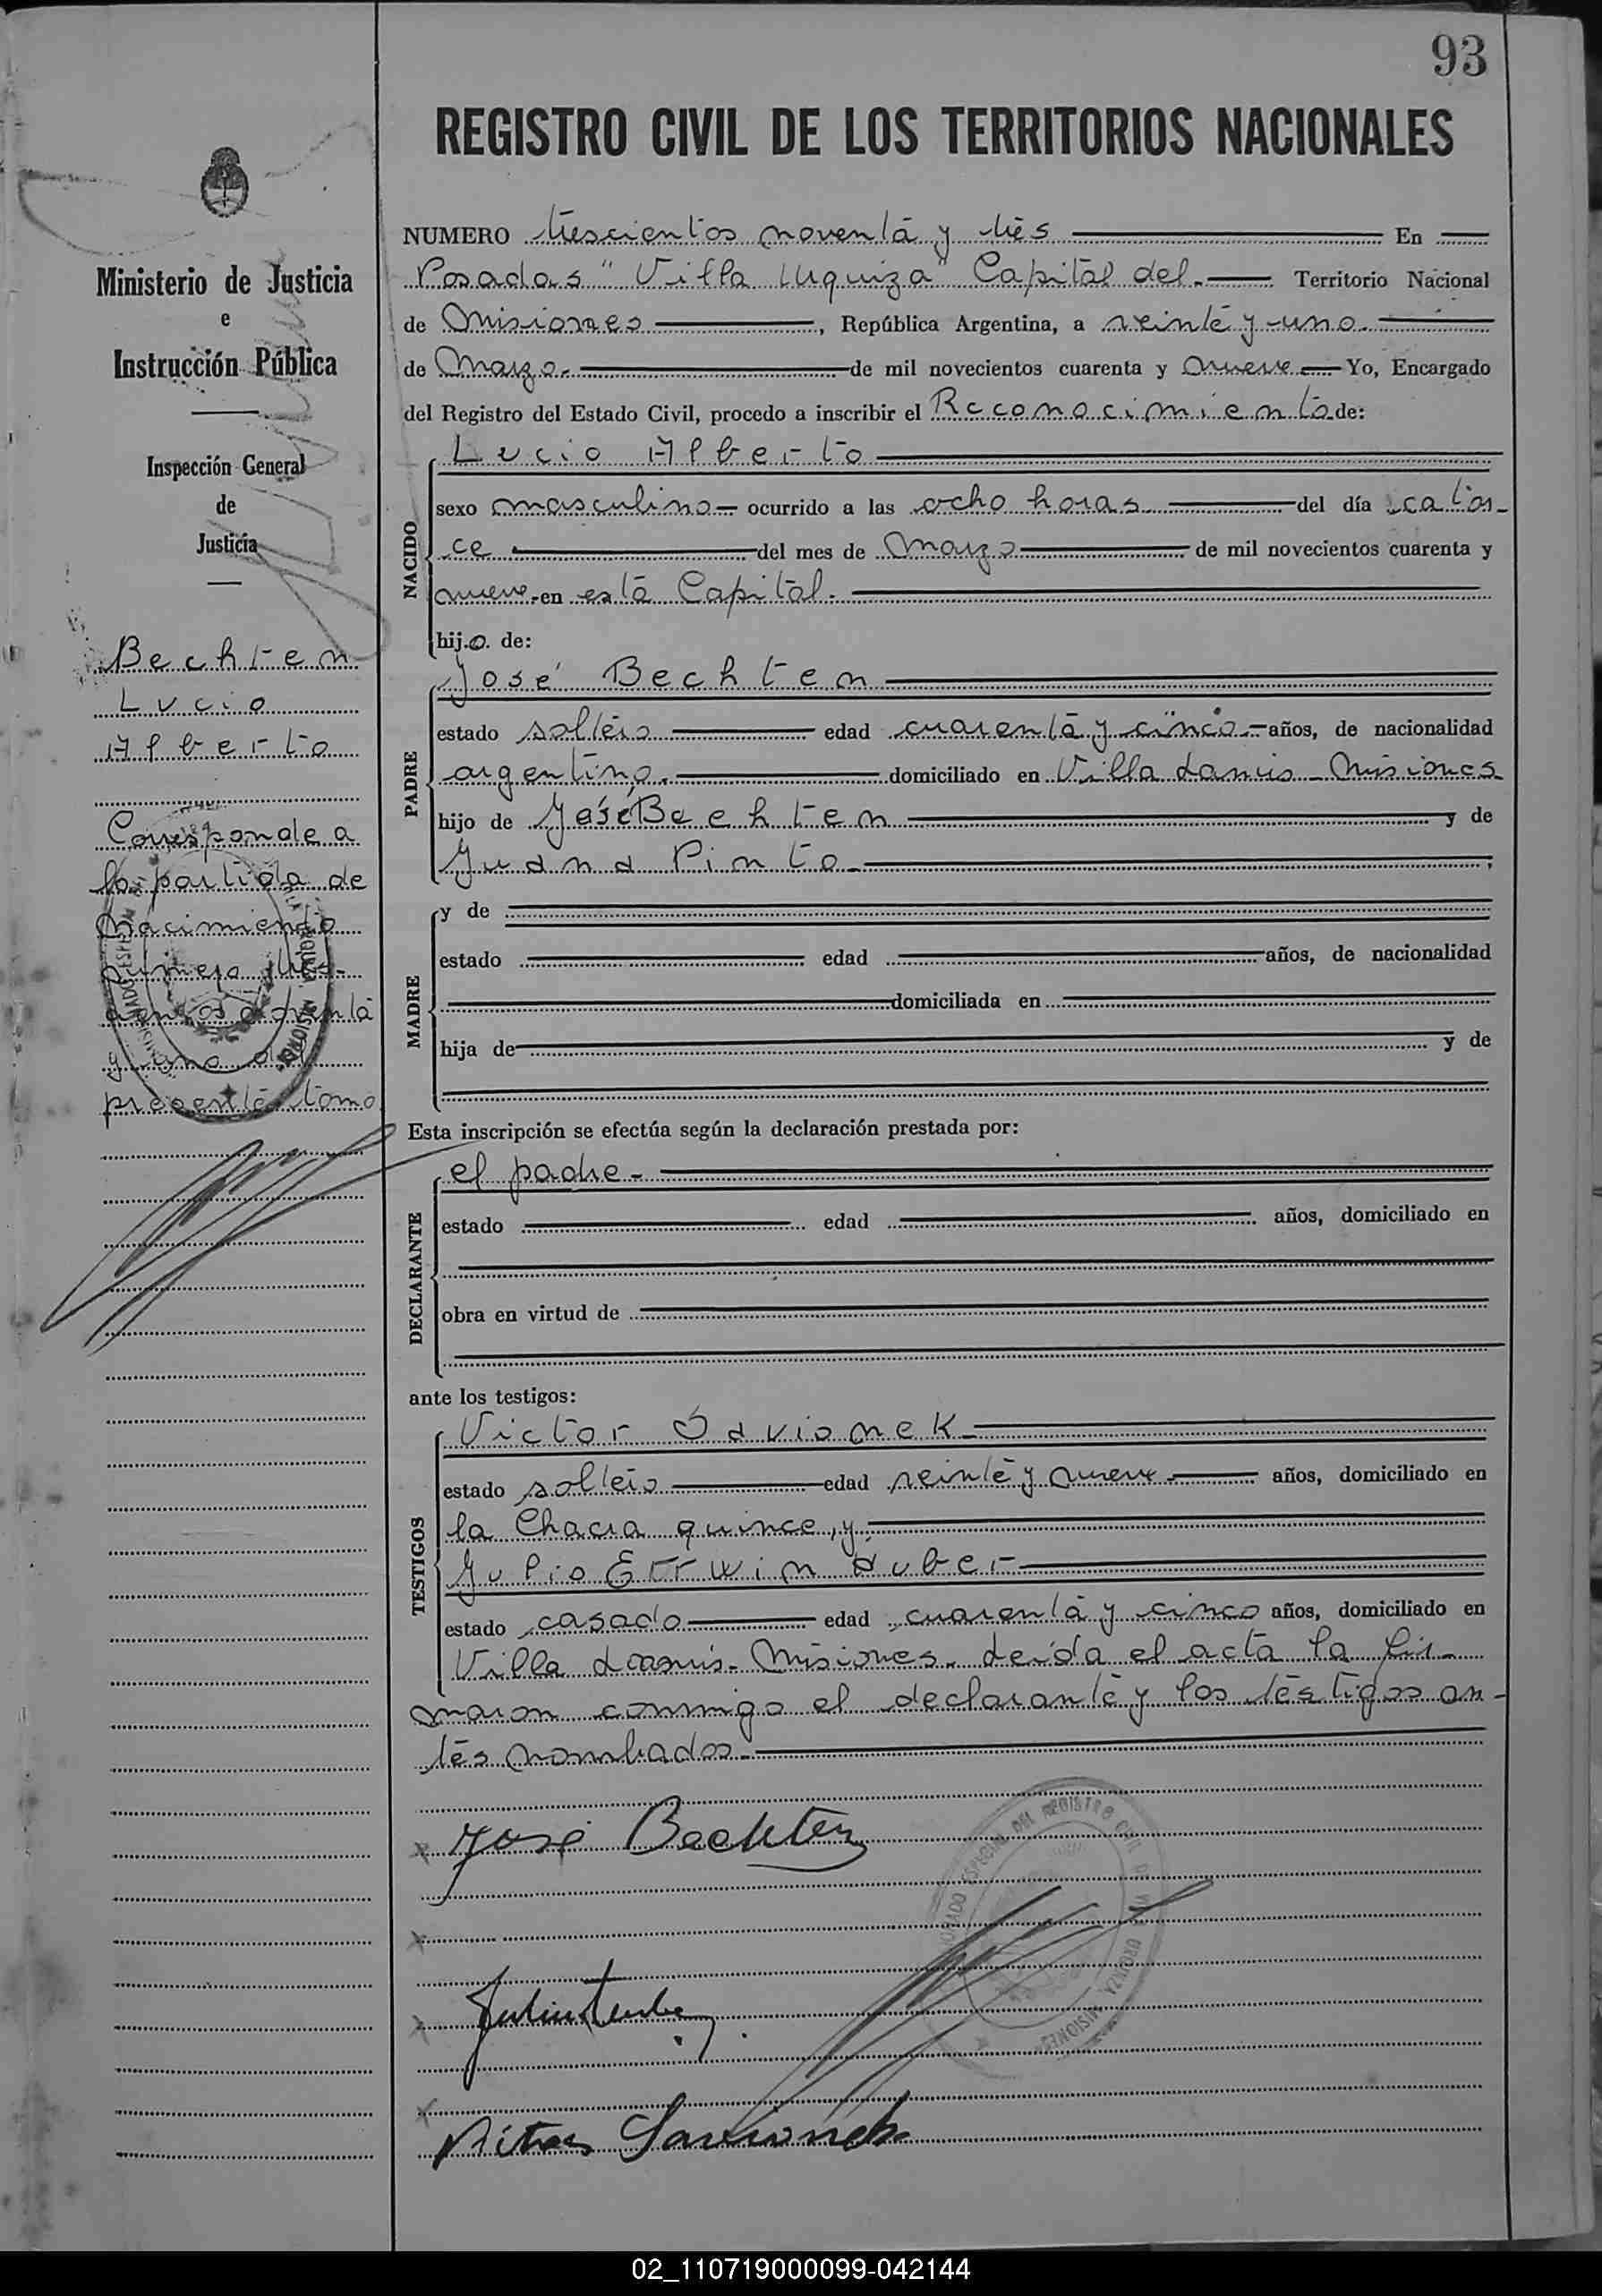 93
REGISTRO CIVIL DE LOS TERRITORIOS NACIONALES
Ministerio de Justicia
e
Instrucción Pública
Inspección General
de
Justicia
Bechten
Lucio
Alberto
Corresponde a
la partida de
nacimiento
número
y uno del
presente tomo
NUMERO trescientos noventa y tres En
Posadas "Villa Urquiza" Capital del Territorio Nacional
de Misiones, República Argentina, a veinte y uno
de Marzo. de mil novecientos cuarenta y nueve Yo, Encargado
del Registro del Estado Civil, procedo a inscribir el Reconocimiento de:
NACIDO
Lucio Alberto
sexo masculino ocurrido a las ocho horas del día cator-
ce del mes de Marzo de mil novecientos cuarenta y
nueve en esta Capital.
hijo de:
PADRE
José Bechten
estado soltero edad cuarenta y cinco años, de nacionalidad
argentino. domiciliado en Villa Lanús - Misiones
hijo de José Bechten y de
Juana Pinto
MADRE
y de
estado edad años, de nacionalidad
domiciliada en
hija de y de
Esta inscripción se efectúa según la declaración prestada por:
DECLARANTE
el padre
estado edad años, domiciliado en
obra en virtud de
ante los testigos:
TESTIGOS
Victor Savionek
estado soltero edad veinte y nueve años, domiciliado en
la Chacra quince, y
Julio Errwin
estado casado edad cuarenta y cinco años, domiciliado en
Villa Lanús - Misiones. Leída el acta la fir-
maron conmigo el declarante y los testigos an-
tes nombrados.
José Bechten
Savionek
02_110719000099-042144